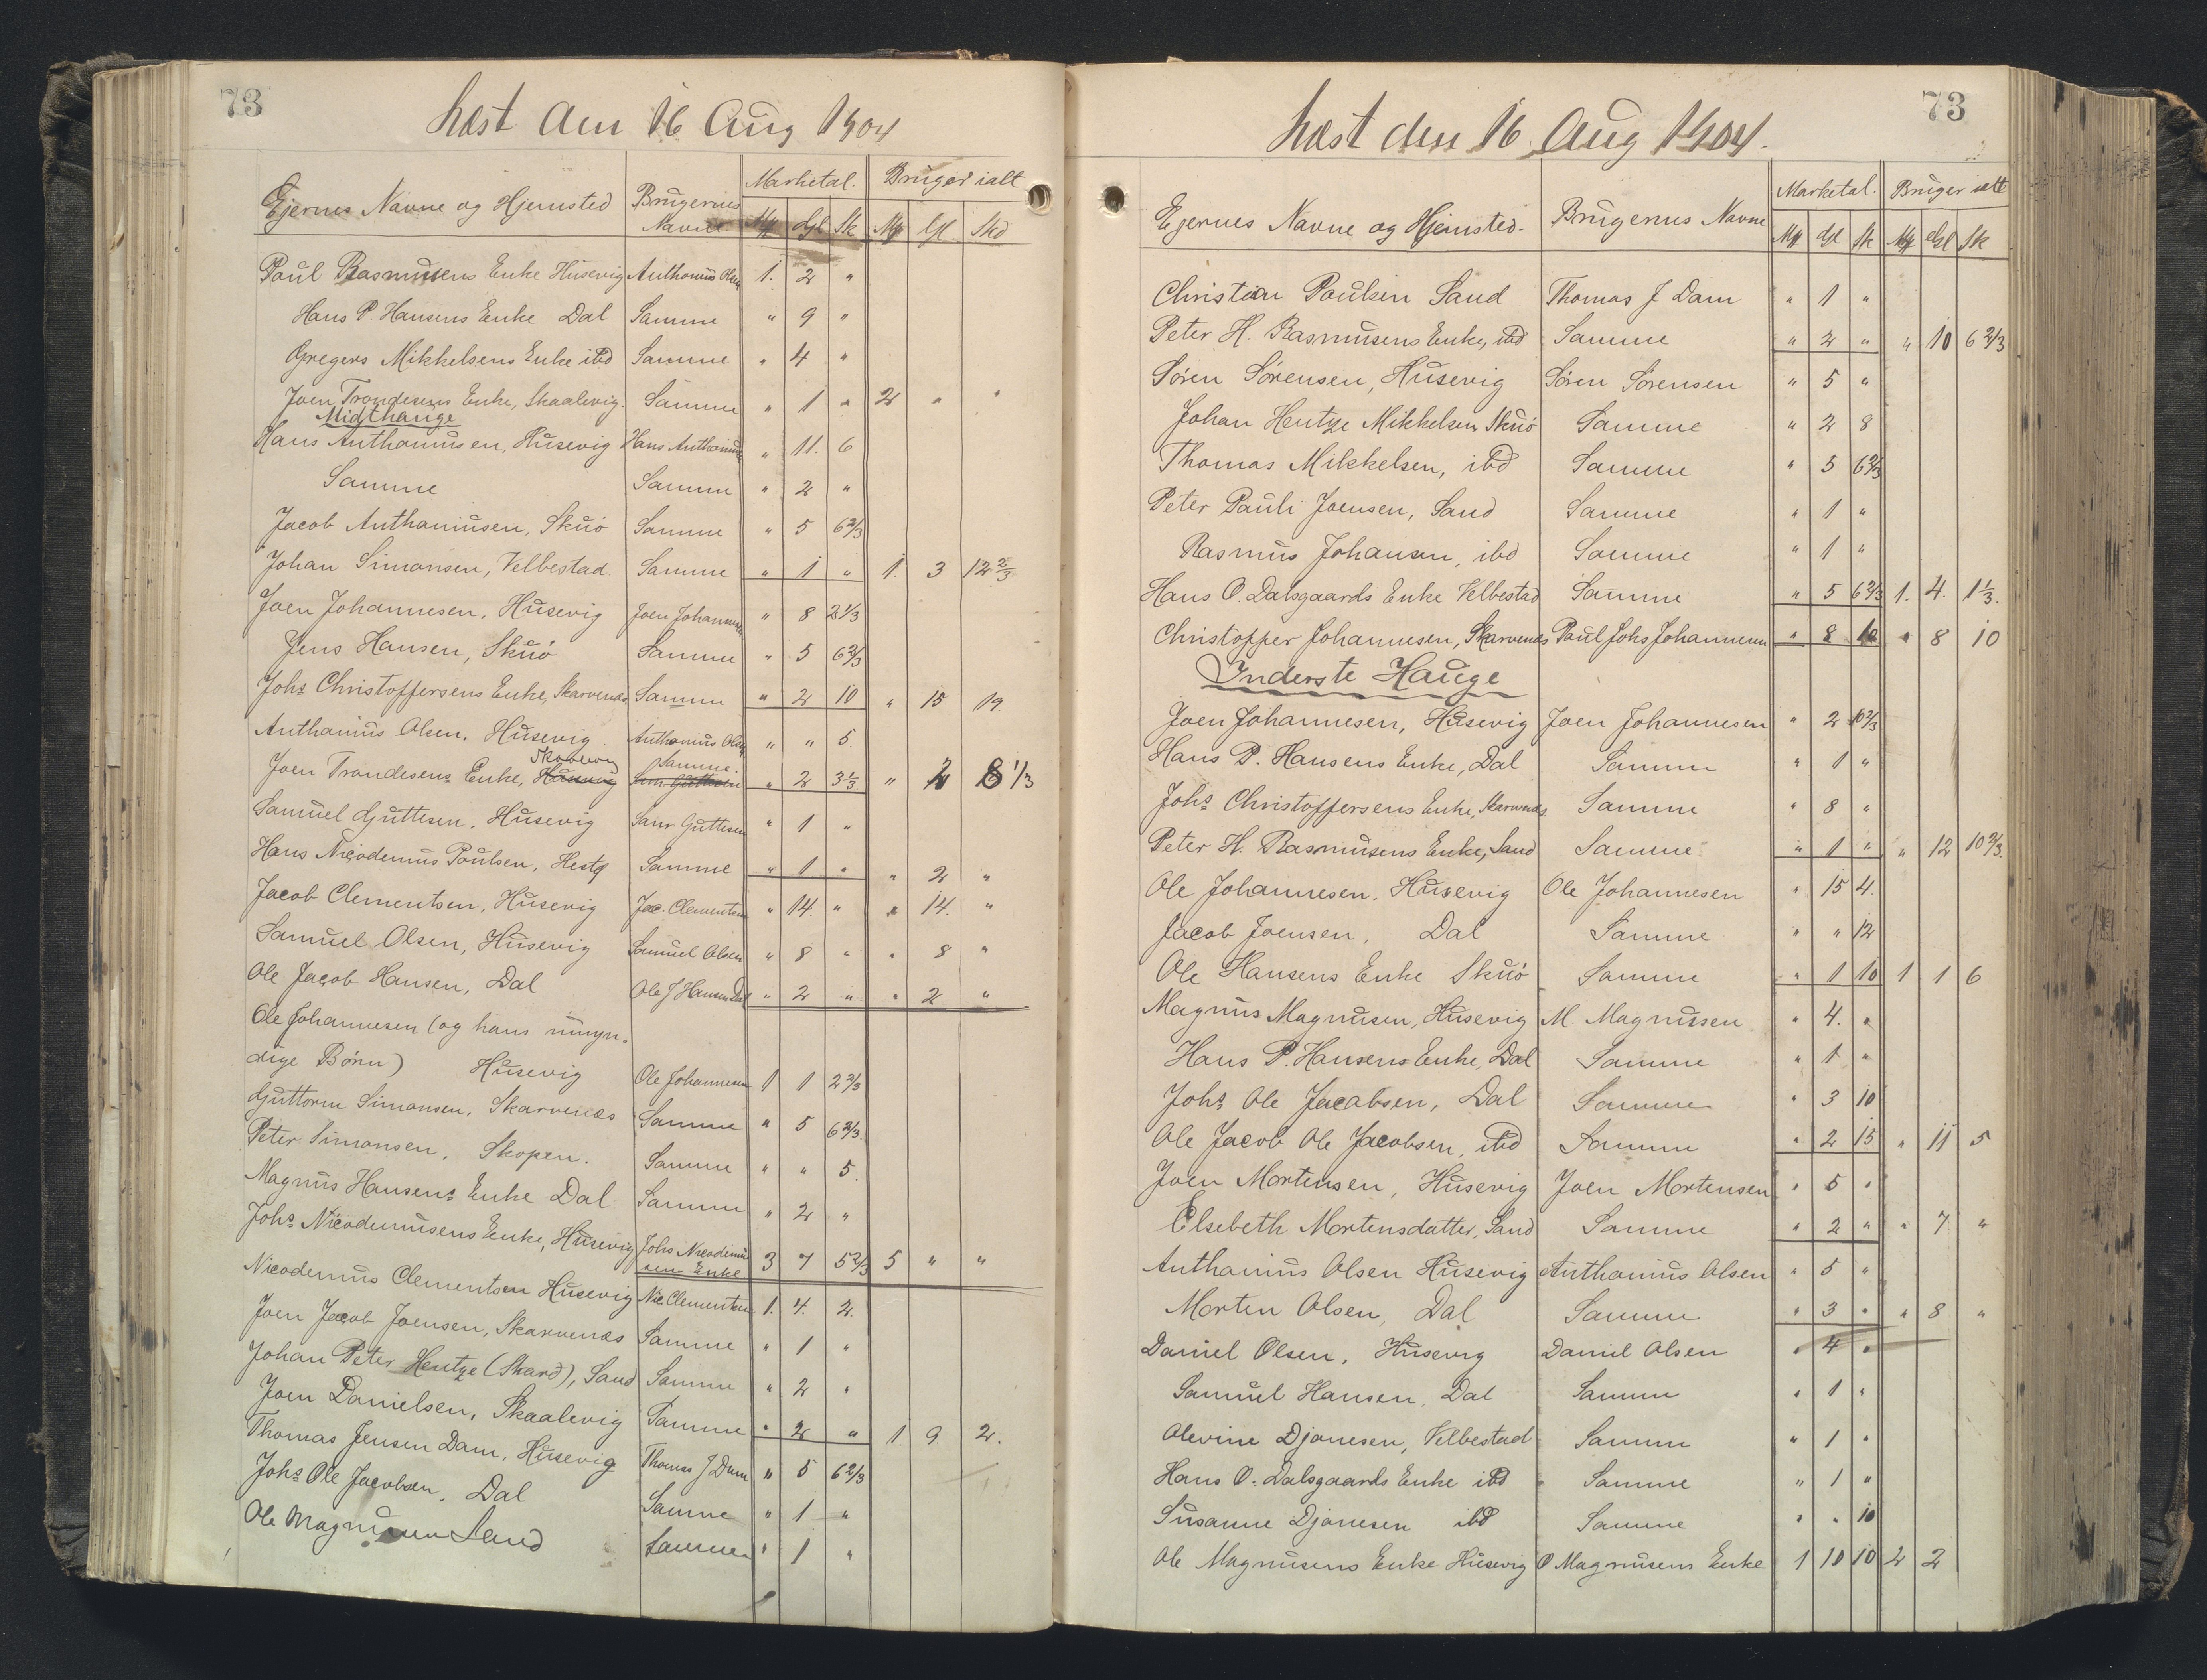 73
Læst den 16 Aug 1904
Ejernes Navne og Hjemsted Brugernes Navne Marketal. Bruger ialt
Mk Gl Sk Mk Gl Sk
Paul Rasmusens Enke Husevig Anthonius Olsen 1. 2 "
Hans P. Hansens Enke Dal Samme " 9 "
Gregers Mikkelsens Enke ibd Samme " 4 "
Joen Trondesens Enke, Skaalevig. Samme " 1 " 2 " "
Midthauge
Hans Anthoniusen, Husevig Hans Anthonius " 11. 6
Samme Samme " 2 "
Jacob Anthoniusen, Skuö Samme " 5 6 2/3
Johan Simonsen, Velbestad. Samme " 1 " 1. 3 12 2/3
Joen Johannesen, Husevig Joen Johannesen " 8 2 1/3
Jens Hansen, Skuö Samme " 5 6 2/3
Johs Christoffersens Enke, Skarvenæs Samme " 2 10 " 15 19.
Anthonius Olsen, Husevig. Anthonius Olsen " " 5.
Joen Trondesens Enke, Husevig Skaalevig Samme. " 2 3 1/3 " 2 8 1/3
Samuel Guttesen, Husevig Sam. Guttesen " 1 "
Hans Nicodemus Poulsen, Hestø Samme " 1 " " 2 "
Jacob Clementsen, Husevig Jac. Clementsen " 14 " " 14. "
Samuel Olsen, Husevig Samuel Olsen " 8 " " 8 "
Ole Jacob Hansen, Dal Ole J Hansen Dal " 2 " " 2 "
Ole Johannesen (og hans umyn-
dige Börn) Husevig Ole Johannesen 1 1 2 2/3
Guttorm Simonsen, Skarvenæs Samme " 5 6 2/3
Peter Simonsen, Skopen. Samme " " 5.
Magnus Hansens Enke Dal Samme " 2 "
Johs Nicodemusens Enke, Husevig Johs Nicodemusens Enke 3 7 5 2/3 5 " "
Nicodemus Clementsen Husevig Nic Clementsen 1. 4. 2.
Joen Jacob Joensen, Skarvenæs Samme " 1 "
Johan Peter Hentze (Skard), Sand Samme " 2 "
Joen Danielsen, Skaalevig Samme " 2 " 1 9 2.
Thomas Jensen Dam, Husevig Thomas J Dam " 5 6 2/3
Johs Ole Jacobsen, Dal Samme " 1 "
Ole Magnusen Sand Samme " 1 "
73
Læst den 16 Aug 1904.
Ejernes Navne og Hjemsted. Brugernes Navne Marketal. Bruger ialt
Mk Gl Sk Mk Gl Sk
Christian Poulsen Sand Thomas J Dam " 1 "
Peter H. Rasmusens Enke, ibd Samme " 2 " " 10 6 2/3
Sören Sörensen, Husevig Sören Sörensen " 5 "
Johan Hentze Mikkelsen Skuö Samme " 2 8
Thomas Mikkelsen, ibd Samme " 5 6 2/3
Peter Pauli Joensen, Sand Samme " 1 "
Rasmus Johansen, ibd Samme " 1 "
Hans O. Dalsgaards Enke Velbestad Samme " 5 6 2/3 1. 4. 1 1/3.
Christoffer Johannesen, Skarvenæs Paul Johs Johannesen " 8 10 " 8 10
Inderste Hauge
Joen Johannesen, Husevig Joen Johannesen " 2 10 2/3
Hans P. Hansens Enke, Dal Samme " 1 "
Johs Christoffersens Enke, Skarvenæs. Samme " 8 "
Peter H. Rasmusens Enke, Sand Samme " 1 " " 12 10 2/3.
Ole Johannesen, Husevig Ole Johannesen " 15 4.
Jacob Joensen, Dal Samme " " 12
Ole Hansens Enke Skuö Samme " 1 10 1 1 6
Magnus Magnusen, Husevig M. Magnussen " 4. "
Hans P. Hansens Enke, Dal Samme " 1 "
Johs Ole Jacobsen, Dal Samme " 3 10
Ole Jacob Ole Jacobsen, ibd Samme " 2 15 " 11 5
Joen Mortensen, Husevig Joen Mortensen " 5 "
Elsebeth Mortensdatter, Sand Samme " 2 " " 7 "
Anthonius Olsen Husevig Anthonius Olsen " 5 "
Morten Olsen, Dal Samme " 3 " " 8 "
Daniel Olsen, Husevig Daniel Olsen " 4 "
Samuel Hansen, Dal Samme " 1 "
Olevine Djonesen, Velbestad Samme " 1 "
Hans O. Dalsgaards Enke ibd Samme " 1 "
Susanne Djonesen ibd Samme " " 10
Ole Magnusens Enke Husevig O Magnusens Enke 1 10 10 2 2